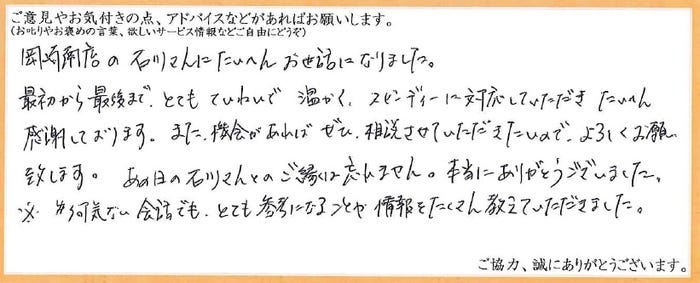 ご意見やお気付きの点、アドバイスなどがあればお願いします。
(お叱りやお褒めの言葉、欲しいサービス情報などご自由にどうぞ)
岡崎商店の石川さんにたいへんお世話になりました。
最初から最後まで、とてもていねいで温かく、スピーディーに対応していただきたいへん
感謝しております。また、機会があればぜひ、相談させていただきたいので、よろしくお願い
致します。あの日の石川さんとのご縁は忘れません。本当にありがとうございました。
※何気ない会話でも、とても参考になることや情報をたくさん教えていただきました。
ご協力、誠にありがとうございます。